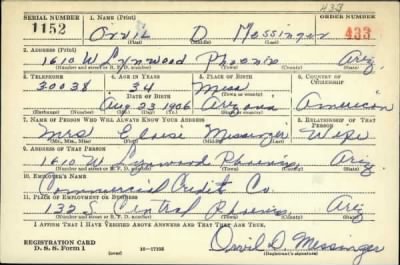 433
SERIAL NUMBER 1. NAME (Print) ORDER NUMBER
1152 Orvil D Messinger 433
(First) (Middle) (Last)
2. ADDRESS (Print)
1610 W Lynwood Phoenix Ariz.
(Number and street or R. F. D. number) (Town) (County) (State)
3. TELEPHONE 4. AGE IN YEARS 5. PLACE OF BIRTH 6. COUNTRY OF CITIZENSHIP
30038 34 Mesa
DATE OF BIRTH (Town or county)
Aug 23 1906 Arizona American
(Exchange) (Number) (Mo.) (Day) (Yr.) (State or country)
7. NAME OF PERSON WHO WILL ALWAYS KNOW YOUR ADDRESS 8. RELATIONSHIP OF THAT PERSON
Mrs Messinger Wife
(Mr., Mrs., Miss) (First) (Middle) (Last)
9. ADDRESS OF THAT PERSON
1610 W Lynwood Phoenix Ariz
(Number and street or R. F. D. number) (Town) (County) (State)
10. EMPLOYER'S NAME
Commercial Credit Co.
11. PLACE OF EMPLOYMENT OR BUSINESS
132 S Central Phoenix Ariz
(Number and street or R. F. D. number) (Town) (County) (State)
I AFFIRM THAT I HAVE VERIFIED ABOVE ANSWERS AND THAT THEY ARE TRUE.
REGISTRATION CARD
D. S. S. Form 1 (over) 16-17105 Orvil D Messinger
(Registrant's signature)